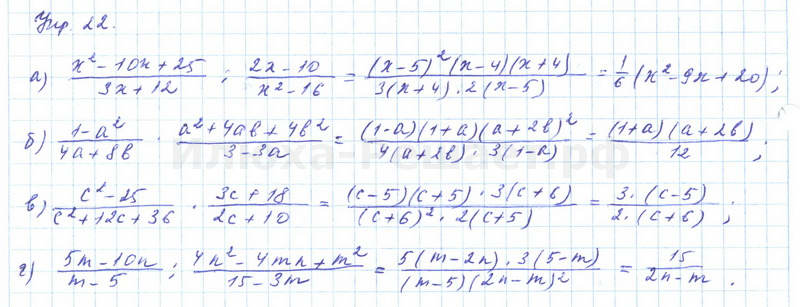 Упр. 22.
а) (x² - 10x + 25)/(3x + 12) : (2x - 10)/(x² - 16) = ((x-5)²(x-4)(x+4))/(3(x+4)·2(x-5)) = 1/6 (x² - 9x + 20);
б) (1-a²)/(4a+8b) · (a² + 4ab + 4b²)/(3-3a) = ((1-a)(1+a)(a+2b)²)/(4(a+2b)·3(1-a)) = ((1+a)(a+2b))/12;
в) (c² - 25)/(c² + 12c + 36) · (3c + 18)/(2c + 10) = ((c-5)(c+5)·3(c+6))/((c+6)²·2(c+5)) = (3·(c-5))/(2·(c+6));
г) (5m - 10n)/(m - 5) : (4n² - 4mn + m²)/(15 - 3m) = (5(m-2n)·3(5-m))/((m-5)(2n-m)²) = 15/(2n-m).